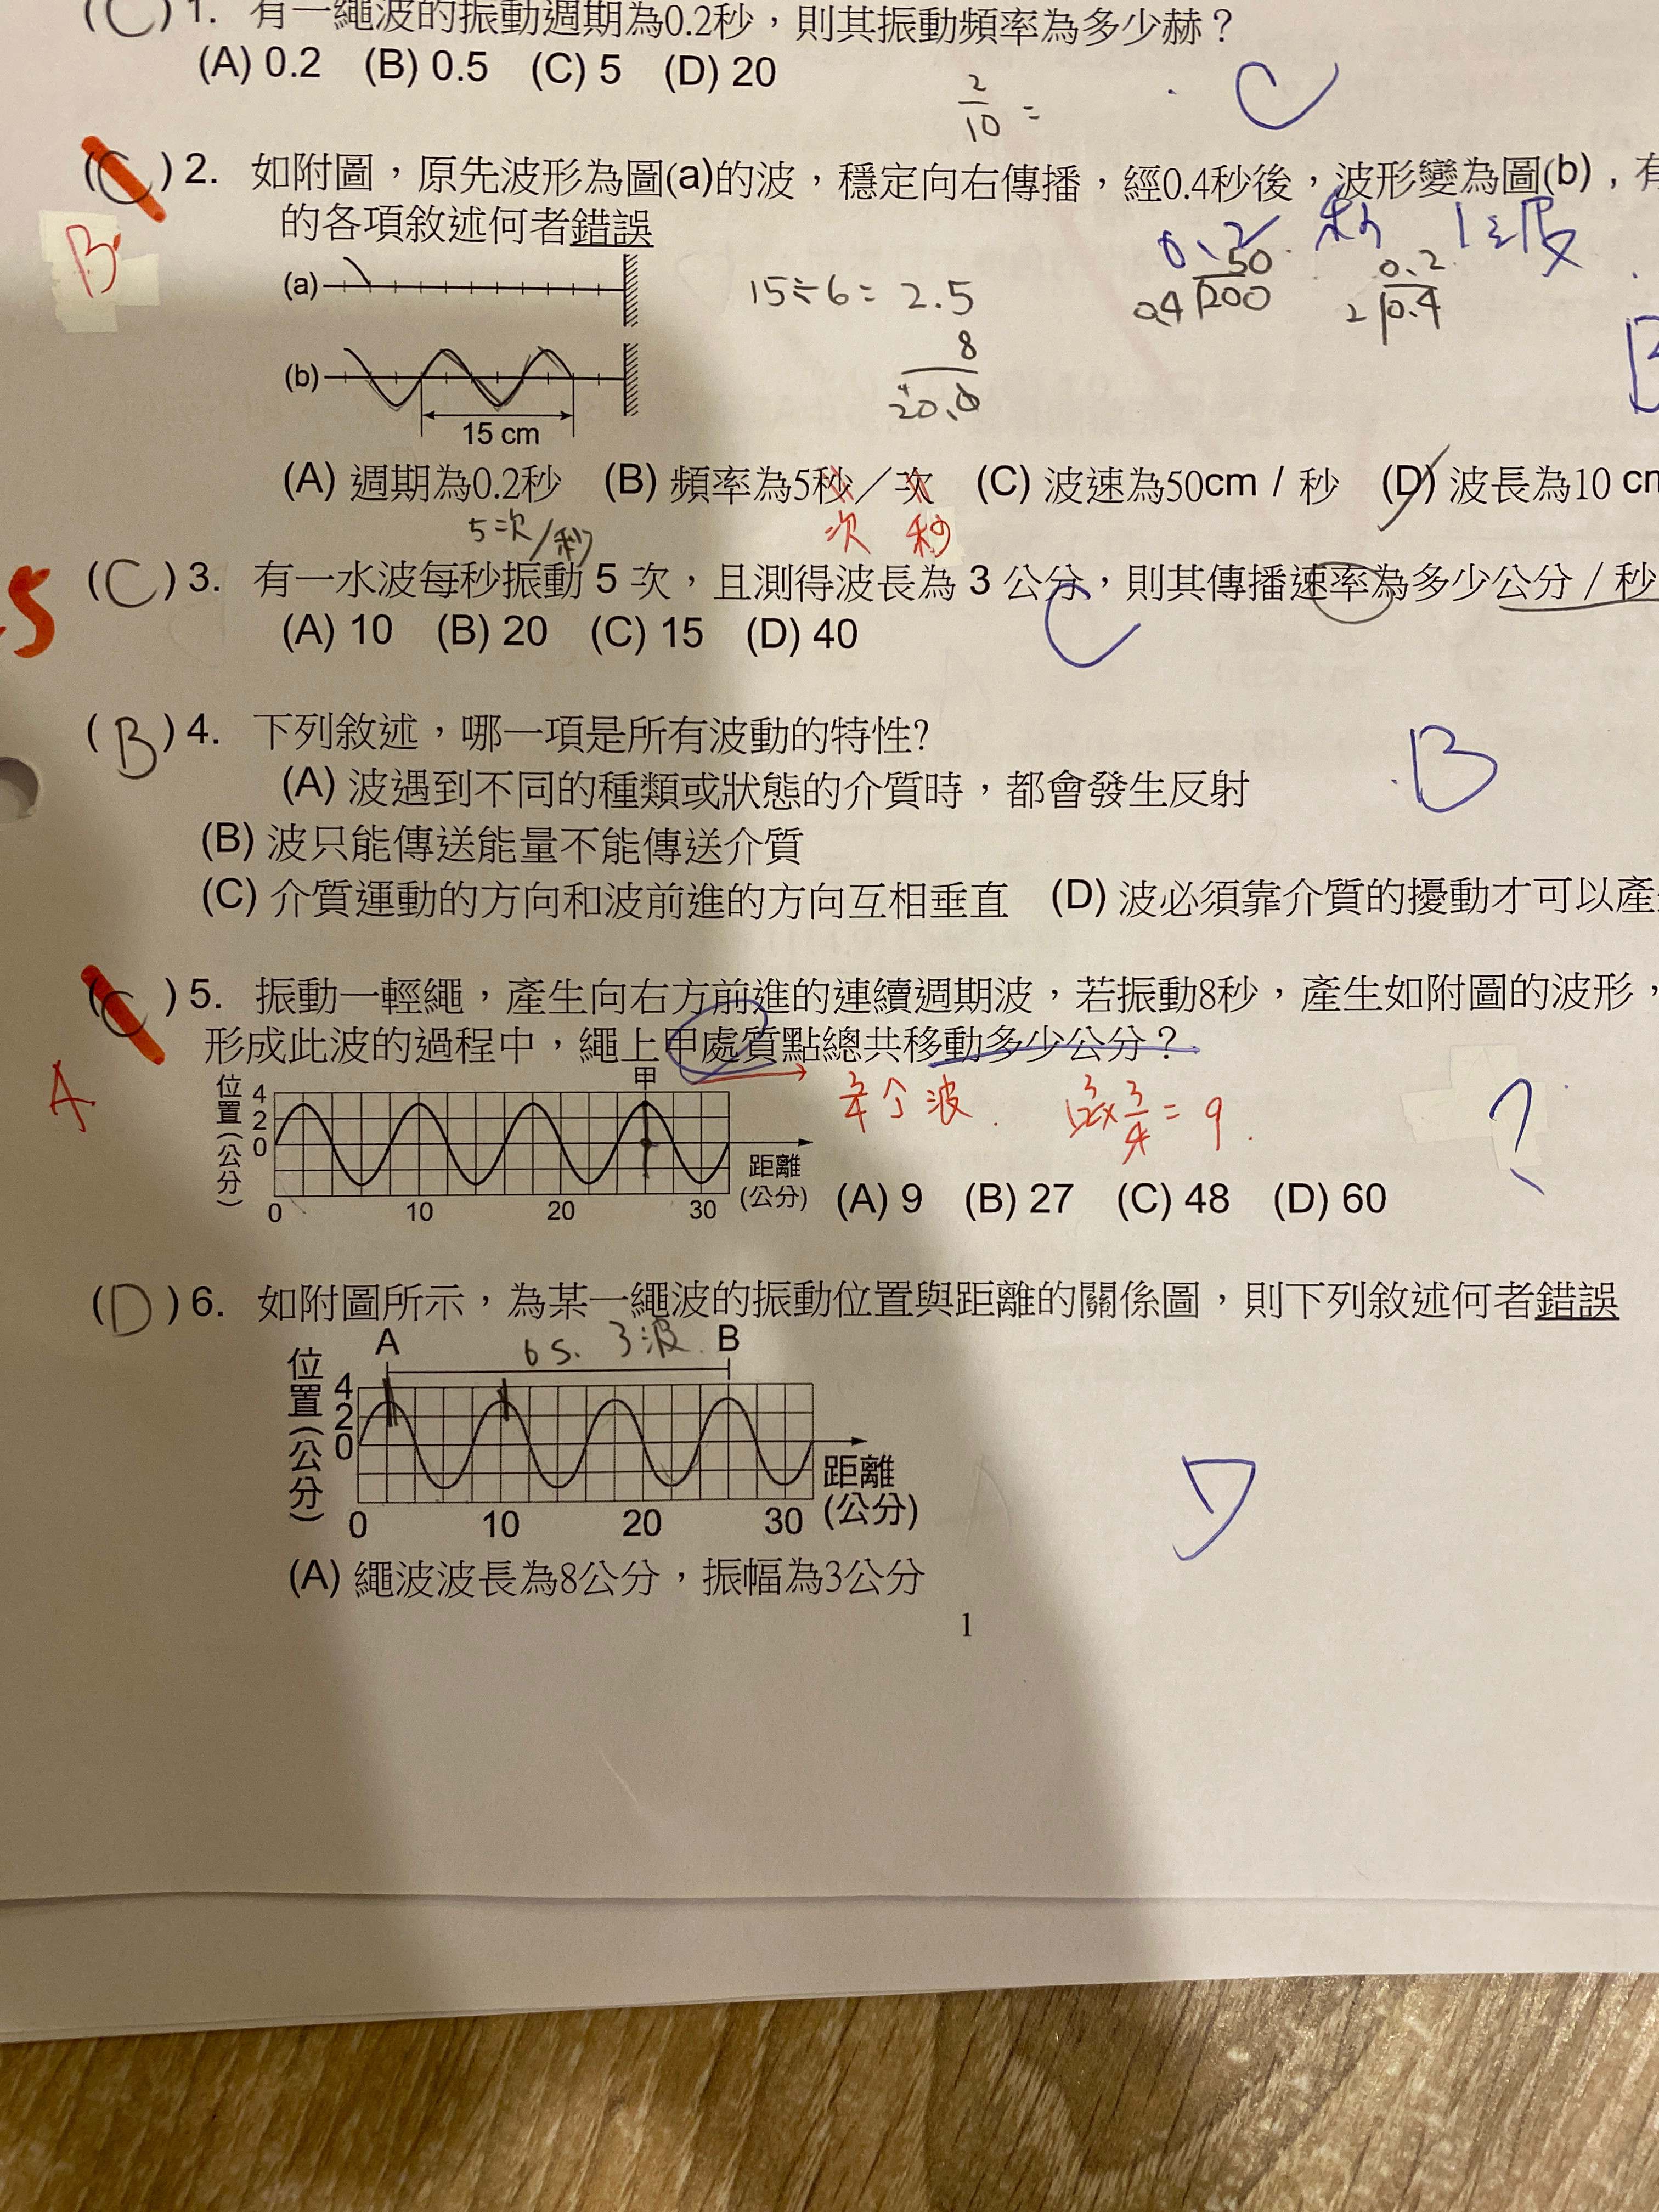 (C) 1. 有一繩波的振動週期為0.2秒，則其振動頻率為多少赫？
(A) 0.2 (B) 0.5 (C) 5 (D) 20
2/10 =
C
(C) 2. 如附圖，原先波形為圖(a)的波，穩定向右傳播，經0.4秒後，波形變為圖(b)，有
的各項敘述何者錯誤
B
0.2 秒 1波
(a)
15÷6= 2.5
8
20.0
50
0.4 200
0.2
2 0.4
B
(b)
15 cm
(A) 週期為0.2秒 (B) 頻率為5秒／次 (C) 波速為50cm / 秒 (D) 波長為10 cm
5次/秒
次 秒
5
(C) 3. 有一水波每秒振動 5 次，且測得波長為 3 公分，則其傳播速率為多少公分 / 秒
(A) 10 (B) 20 (C) 15 (D) 40
C
(B) 4. 下列敘述，哪一項是所有波動的特性?
B
(A) 波遇到不同的種類或狀態的介質時，都會發生反射
(B) 波只能傳送能量不能傳送介質
(C) 介質運動的方向和波前進的方向互相垂直 (D) 波必須靠介質的擾動才可以產
(C) 5. 振動一輕繩，產生向右方前進的連續週期波，若振動8秒，產生如附圖的波形，
形成此波的過程中，繩上甲處質點總共移動多少公分？
A
甲
位置(公分)
4
2
0
3/4 个 波
12×3/4 = 9
?
距離
(公分)
0 10 20 30
(A) 9 (B) 27 (C) 48 (D) 60
(D) 6. 如附圖所示，為某一繩波的振動位置與距離的關係圖，則下列敘述何者錯誤
A 6 s. 3波 B
位置(公分)
4
2
0
距離
(公分)
0 10 20 30
D
(A) 繩波波長為8公分，振幅為3公分
1